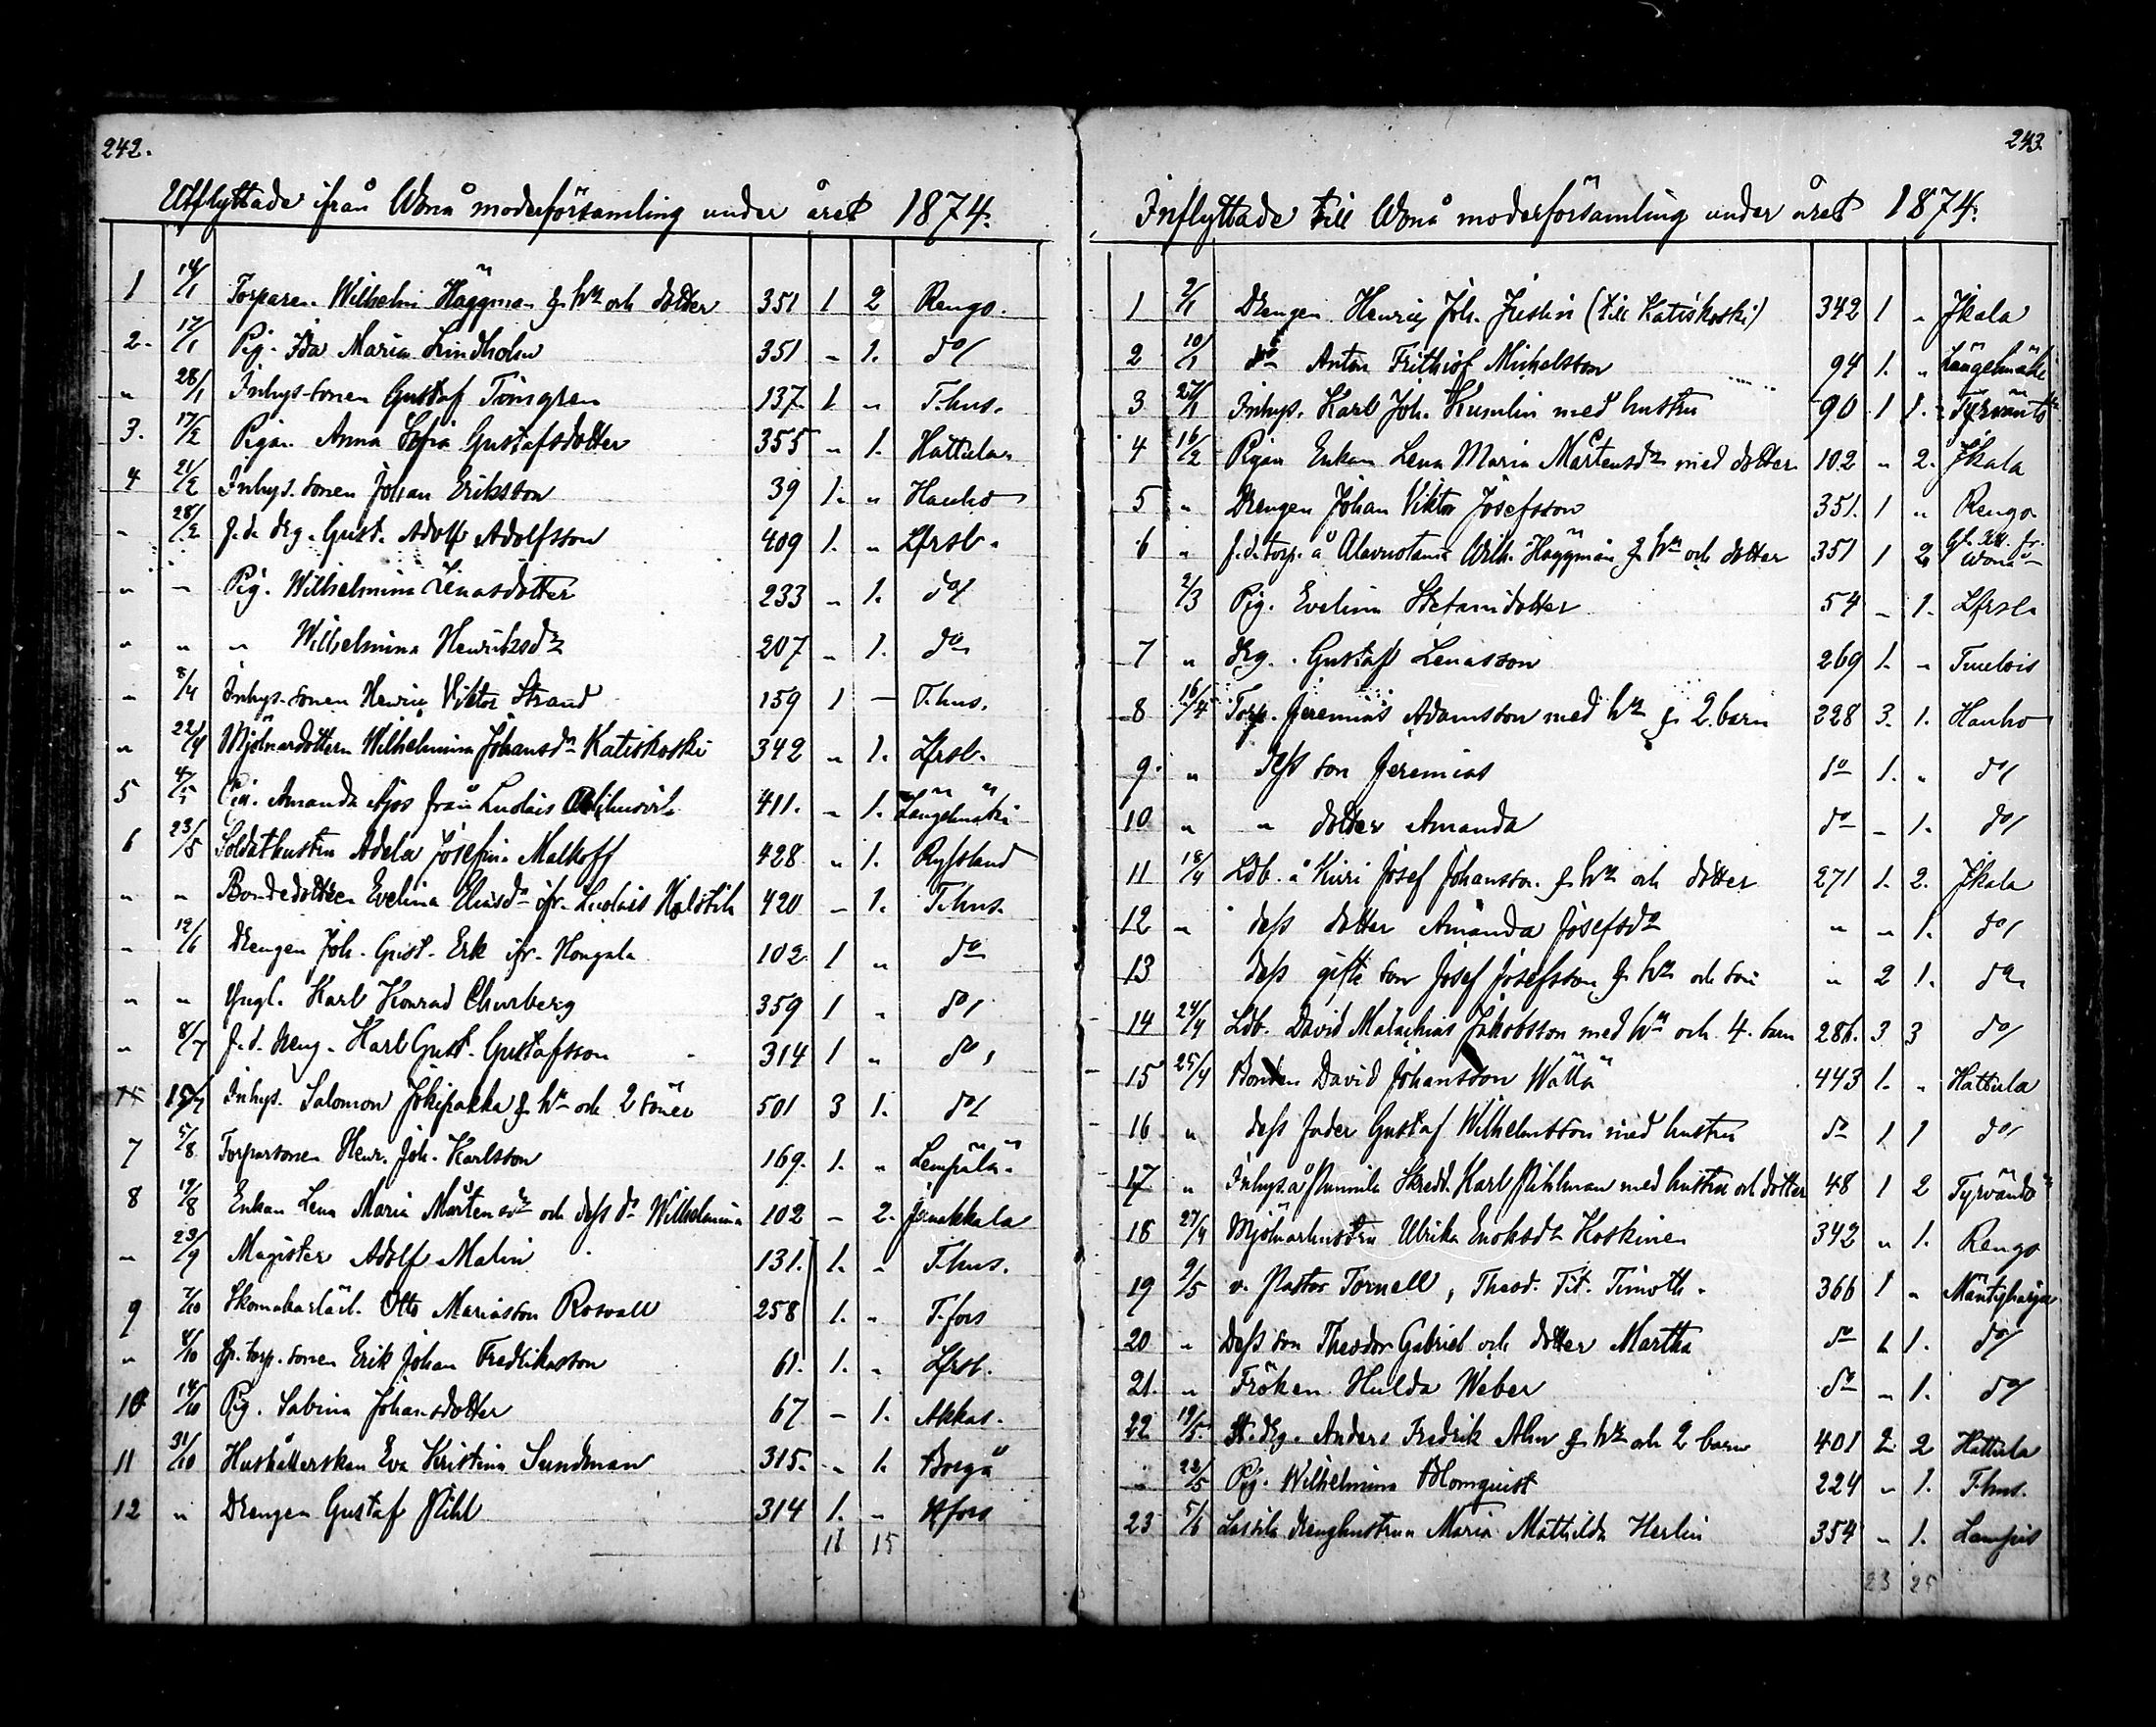 242.
Utflyttade ifrån Wånå moderförsamling under året 1874.
1 14/1 Torparen Wilhelm Häggman f. hu och dotter 351 1 2 Rengo.
2. 17/1 Pig. Ida Maria Lindholm 351 - 1. do
" 28/1 Inhys-sonen Gustaf Törngren 137 1 " T.hus.
3. 17/2 Pigan Anna Sofia Gustafsdotter 355 " 1. Hattula
4 21/2 Inhys. sonen Johan Eriksson 39 1. " Hauho
- 28/2 f.d. drg. Gust. Adolf Adolfsson 409 1. " Lfrsl.
" - Pig. Wilhelmina Lenasdotter 233 - 1. do
" " " Wilhelmina Henriksdr 207 " 1. do
- 8/4 Inhys-sonen Henric Viktor Strand 159 1 - T.hus.
" 22/4 Mjölnardottern Wilhelmina Johansdr Katiskoski 342 " 1. Lfrsl.
5 4/5 Pig. Amanda från Luolais 411. - 1. Längelmäki
6 23/5 Soldathustru Adela Josefina Malkoff 428 " 1. Ryssland
" " Bondedottren Evelina Eliasdr ifr. Luolais 420 - 1. T.hus.
- 12/6 Drengen Joh. Gust. Erk ifr. Hongala 102 1 " do
" " Yngl. Karl Konrad Churberg 359 1 " do
" 8/7 f.d. dreng. Karl Gust. Gustafsson 314 1 " do
15/7 Inhys. Salomon Jokipakka f. hu och 2 söner 501 3 1. do
7 5/8 Torparsonen Henr. Joh. Karlsson 169. 1. " Lempälä.
8 19/8 Enkan Lena Maria Mårtensdr och dess dr Wilhelmina 102 - 2. Janakkala
- 23/9 Magister Adolf Malin 131. 1. " T.hus.
9 7/10 Skomakarlärl. Otto Mariasson Rosvall 258 1. " T.fors
" 8/10 torp. sonen Erik Johan Fredriksson 61. 1. " Lfrsl.
10 14/10 Pig. Sabina Johansdotter 67 - 1. Akkas.
11 31/10 Hushållerskan Eva Kristina Sundman 315. " 1. Borgå
12 " Drengen Gustaf Pihl 314 1. " Hfors
18 15
243.
Inflyttade till Wånå moderförsamling under året 1874.
1 2/1 Drengen Henric Joh. Juslin (till Katiskoski) 342 1 " Jkala
2 10/1 do Anton Frithiof Michelsson 94 1. " Längelmäki
3 27/1 Inhys. Karl Joh. Kumlin med hustru 90 1 1. Tyrväntö
4 16/2 Pigan Enkan Lena Maria Mårtensdr med dotter 102 " 2. Jkala
5 " Drengen Johan Viktor Josefsson 351. 1 " Rengo
6 " f.d. torp. å Alavuotama Wilh. Häggman f. hu och dotter 351 1 2
2/3 Pig. Evelina Stefansdotter 54 - 1. Lfrsl.
7 " drg. Gustaf Lenasson 269 1. " Tuulois
8 16/4 Torp. Jeremias Adamsson med hu f 2 barn 228 3. 1. Hauho
9. " dess son Jeremias do 1. " do
10 " " dotter Amanda do - 1. do
11 18/4 Ldb. å Kuri Josef Johansson f. hu och dotter 271 1. 2. Jkala
12 " dess dotter Amanda Josefsdr " " 1. do
13 dess gifte son Josef Josefsson f. hu och son " 2 1. do
14 24/4 Ldb. David Malachias Jakobsson med hu och 4. barn 286. 3 3 do
15 25/4 Bonden David Johansson Wälla 443 1. " Hattula
16 " dess fader Gustaf Wilhelmsson med hustru do 1 1 do
17 " Inhys. å Nummila Skredd. Karl Pihlman med hustru och dotter 48 1 2 Tyrväntö
18 27/4 Mjölnarhustru Ulrika Enoksdr Koskinen 342 " 1. Rengo
19 9/5 v. Pastor Tornell, Theod. Tit. Timoth. 366 1 " Mäntyharju
20 " Dess son Theodor Gabriel och dotter Martha do 1 1. do
21. " Fröken Hulda Weber do - 1. do
22 19/5 St. drg. Anders Fredrik Alm f. hu och 2 barn 401 2 2 Hattula
" 22/5 Pig. Wilhelmina Blomquist 224 " 1. T.hus.
23 5/6 Lassila drenghustrun Maria Mathilda Herlin 354 " 1. Lampis
23 25